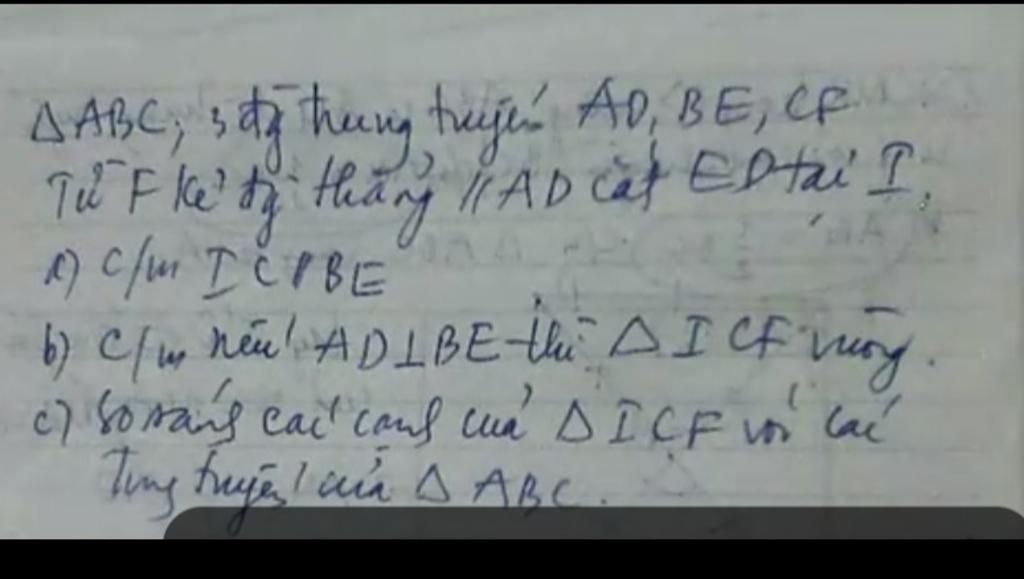 Δ ABC, 3 đg trung tuyến AD, BE, CF
Từ F kẻ đg thẳng // AD cắt ED tại I.
a) C/m IC // BE
b) C/m nếu AD ⊥ BE thì Δ ICF vuông.
c) So sánh các cạnh của Δ ICF với các
trung tuyến của Δ ABC.